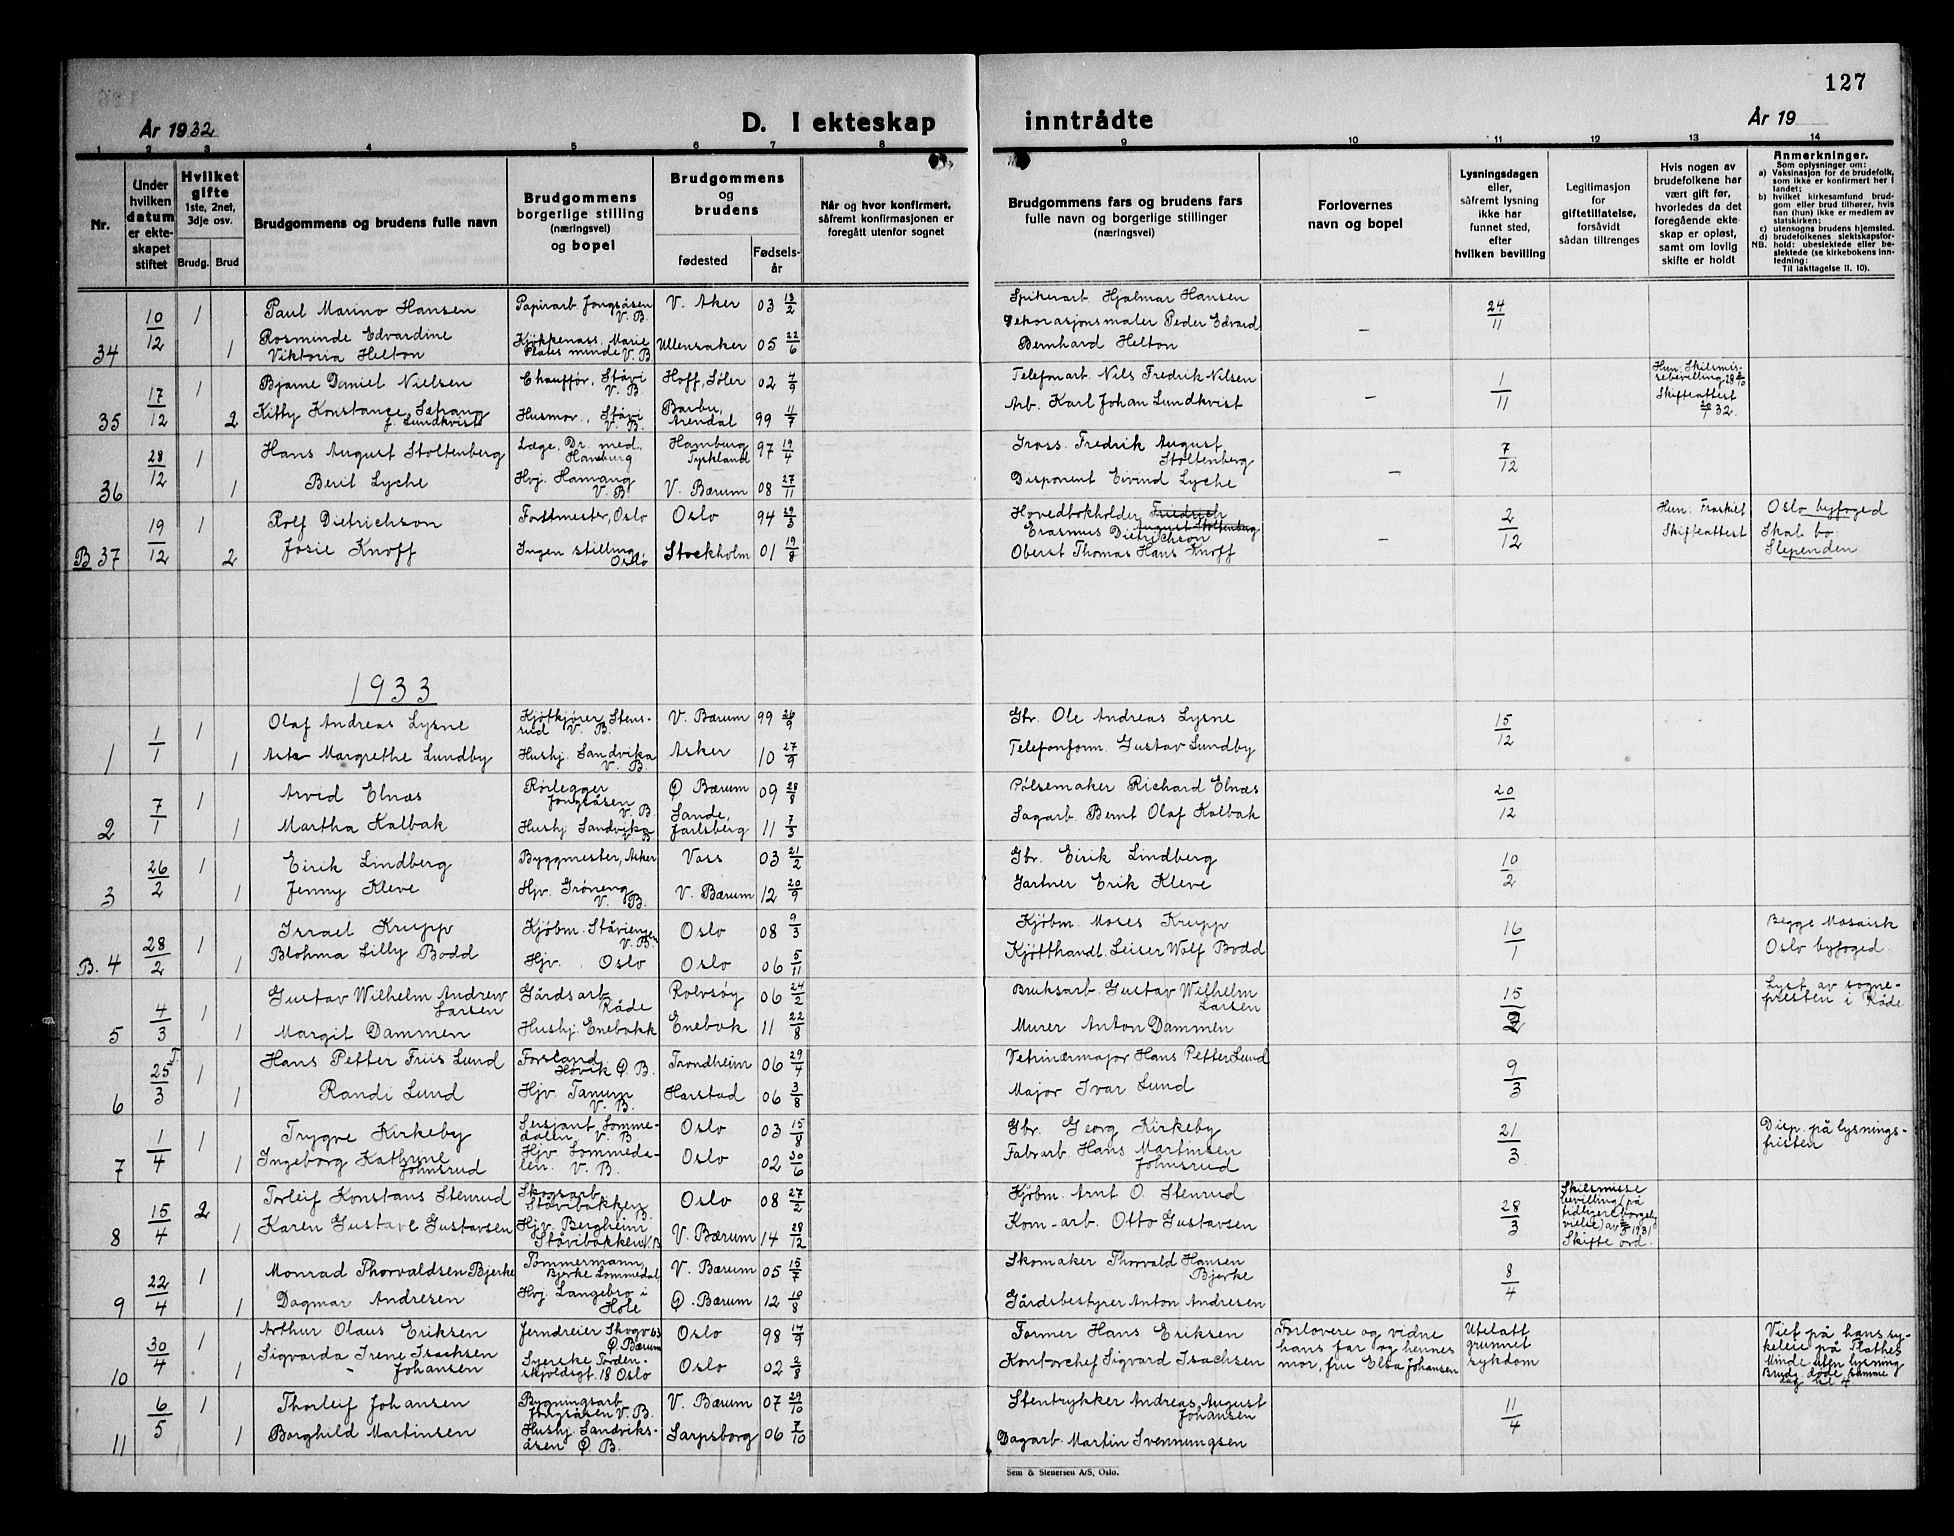 127
År 1932
D. I ekteskap inntrådte
År 19
1 2 3 4 5 6 7 8 9 10 11 12 13 14
Nr.
Under hvilken datum er ekteskapet stiftet
Hvilket gifte 1ste, 2net, 3dje osv.
Brudg. Brud
Brudgommens og brudens fulle navn
Brudgommens borgerlige stilling (næringsvei) og bopel
Brudgommens og brudens
fødested
Fødselsår
Når og hvor konfirmert, såfremt konfirmasjonen er foregått utenfor sognet
Brudgommens fars og brudens fars fulle navn og borgerlige stillinger (næringsvei)
Forlovernes navn og bopel
Lysningsdagen eller, såfremt lysning ikke har funnet sted, efter hvilken bevilling
Legitimasjon for giftetillatelse, forsåvidt sådan tiltrenges
Hvis nogen av brudefolkene har vært gift før, hvorledes da det foregående ekteskap er opløst, samt om lovlig skifte er holdt
Anmerkninger.
Som oplysninger om:
a) Vaksinasjon for de brudefolk, som ikke er konfirmert her i landet;
b) hvilket kirkesamfund brudgom eller brud tilhører, hvis han (hun) ikke er medlem av statskirken;
c) utensogns brudens hjemsted.
d) brudefolkenes slektskapsforhold: ubeslektede eller beslektede (se kirkebokens innledning:
NB.
Til iakttagelse II. 10).
34 10/12 1 Paul Marino Hansen Papirarb Jongsåsen V. B. V. Aker 03 13/2 Spikerarb Hjalmar Hansen 24/11
1 Rosminde Edvardine Viktoria Helton Kjøkkenass. Marie Plates minde V. B Ullensaker 05 22/6 Dekorasjonsmaler Peder Edvard Bernhard Helton –
35 17/12 1 Bjarne Daniel Nielsen Chauffør, Ståvi V. B. Hoff, Søler 02 4/9 Telefonarb. Nils Fredrik Nilsen 1/11 Hun: Skilsmissebevilling 28 Skifteattest 32.
2 Kitty Konstance f. Lundkvist Husmor, Ståvi V. B. Barbu, Arendal 99 4/7 Arb. Karl Johan Lundkvist –
36 28/12 1 Hans August Stoltenberg Læge. Dr. med. Hamburg Hamburg Tyskland 97 19/4 Gross. Fredrik August Stoltenberg 7/12
1 Berit Lyche Hvj. Hamang V. B V. Bærum 08 27/11 Disponent Eivind Lyche –
B 37 19/12 1 Rolf Dietrichson Forstmester, Oslo Oslo 94 29/3 Hovedbokholder Friedrich August Stoltenberg Erasmus Dietrichson 2/12 Hun: Fraskilt Skifteattest Oslo byfoged Skal bo: Slependen
2 Josie Knoff Ingen stilling, Oslo Stockholm 01 19/8 Oberst Thomas Hans Knoff –
1933
1 1/1 1 Olaf Andreas Lysne Kjøtkjører Stensrud V. B. V. Bærum 99 26/9 Gbr. Ole Andreas Lysne 15/12
1 Margrethe Lundby Hushj. Sandvika V. B. Asker 10 27/9 Telefonform. Gustav Lundby
2 7/1 1 Arvid Elnæs Rørlegger Jongsåsen V. B Ø Bærum 09 28/8 Pølsemaker Richard Elnæs 20/12
1 Martha Kalbak Hushj. Sandvika V. B Sande, Jarlsberg 11 7/3 Sagarb. Bernt Olaf Kalbak
3 26/2 1 Eirik Lindberg Byggmester, Asker Voss 03 21/2 Gbr. Eirik Lindberg 10/2
1 Jenny Kleve Hjv. Grøneng V. B. V. Bærum 12 20/9 Gartner Erik Kleve
B. 4 28/2 1 Israel Krupp Kjøbm. Ståviengen V. B. Oslo 08 9/3 Kjøbm. Moses Krupp 16/1 Begge Mosaisk Oslo byfoged
1 Blohma Lilly Bodd Hjv. Oslo Oslo 06 5/11 Kjøtthandl. Leiser Wolf Bodd
5 4/3 1 Gustav Wilhelm Andrew Larsen Gårdsarb Råde Rolvsøy 06 24/2 Bruksarb. Gustav Wilhelm Larsen 15/2 Lyst av sognepresten i Råde
1 Margit Dammen Hushj. Enebakk Enebak 11 22/8 Murer Anton Dammen
6 25/3 T. 1 Hans Petter Friis Lund Forstand Høvik Ø. B. Trondheim 06 29/4 Vetrinærmajor Hans Petter Lund 9/3
1 Randi Lund Hjv Tanum V. B. Harstad 06 3/8 Major Ivar Lund
7 1/4 1 Trygve Kirkeby Sersjant Lommedalen V. B Oslo 03 15/8 Gbr. Georg Kirkeby 21/3 Disp. på lysningsfristen
1 Ingeborg Kathrine Johnsrud Hjv Lommedalen. V. B. Oslo 02 30/6 Fabrarb. Hans Martinsen Johnsrud
8 15/4 2 Torleif Konstans Stenrud Skogsarb. Ståvibakken V. B. Oslo 08 27/2 Kjøbm. Arnt O. Stenrud 28/3 Skilsmisse bevilling (på tidligere borgelig vielse) av 1931 Skifte ord.
1 Karen Gustave Gustavsen Hjv. Bergheim Ståvibakken V. B V. Bærum 14 28/12 Kom-arb. Otto Gustavsen
9 22/4 1 Monrad Thorvaldsen Bjerke Tømmermann, Bjerke Lommedal V. Bærum 05 15/7 Skomaker Thorvald Hansen Bjerke 8/4
1 Dagmar Andresen Hvj. Langebro i Hole Ø. Bærum 12 10/8 Gårdsbestyrer Anton Andresen
10 30/4 1 Arthur Olaus Eriksen Jerndreier Skogv 63 Ø. Bærum Oslo 98 14/9 Former Hans Eriksen Forlovere og vidne hans far og hennes mor, fru Elsa Johansen Utelatt grunnet sykdom Viet på hans sykeleie på Plathes Minde uten lysning Brudg. døde samme dag kl 4
1 Sigvarda Irene Isachsen Johansen Syerske Tordenskjoldsgt. 18 Oslo Oslo 02 2/8 Kontorchef Sigvard Isachsen
11 6/5 1 Thorleif Johansen Bygningsarb Jongsåsen V. B. V. Bærum 07 29/10 Stentrykker Andreas August Johansen 11/4
1 Borghild Martinsen Hushj. Sandviksåsen Ø. B. Sarpsborg 06 7/10 Dagarb. Martin Svennungsen
Sem & Stenersen A/S, Oslo.